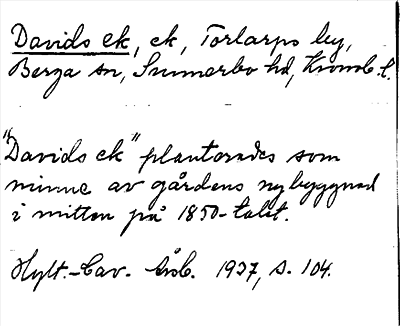 Davids ek, ek, Torlarps by,
Berga sn, Sunnerbo hd, Kronob. l.
"Davids ek" planterades som
minne av gårdens nybyggnad
i mitten på 1850-talet.
Hylt.-Cav. Årsb. 1937, s. 104.